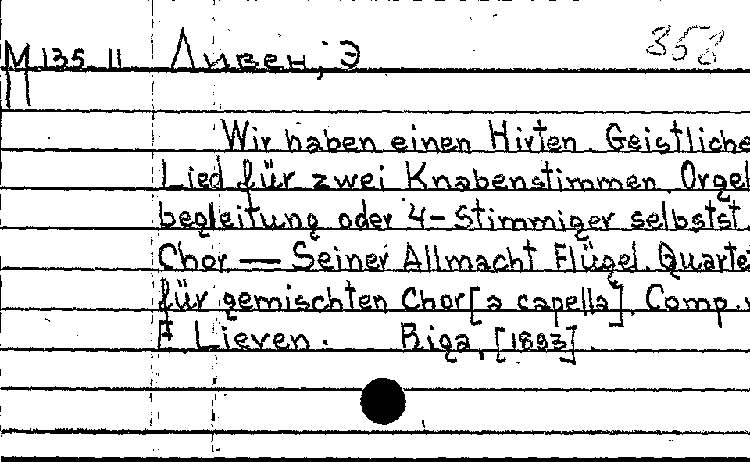 М 135 11 Ливен, Э 358
Wir haben einen Hirten. Geistliche
Lied für zwei Knabenstimmen Orgel
begleitung oder 4-Stimmiger selbstst.
Chor — Seiner Allmacht Flügel. Quarte
für gemischten Chor [a capella]. Comp.
E Lieven. Riga, [1893].